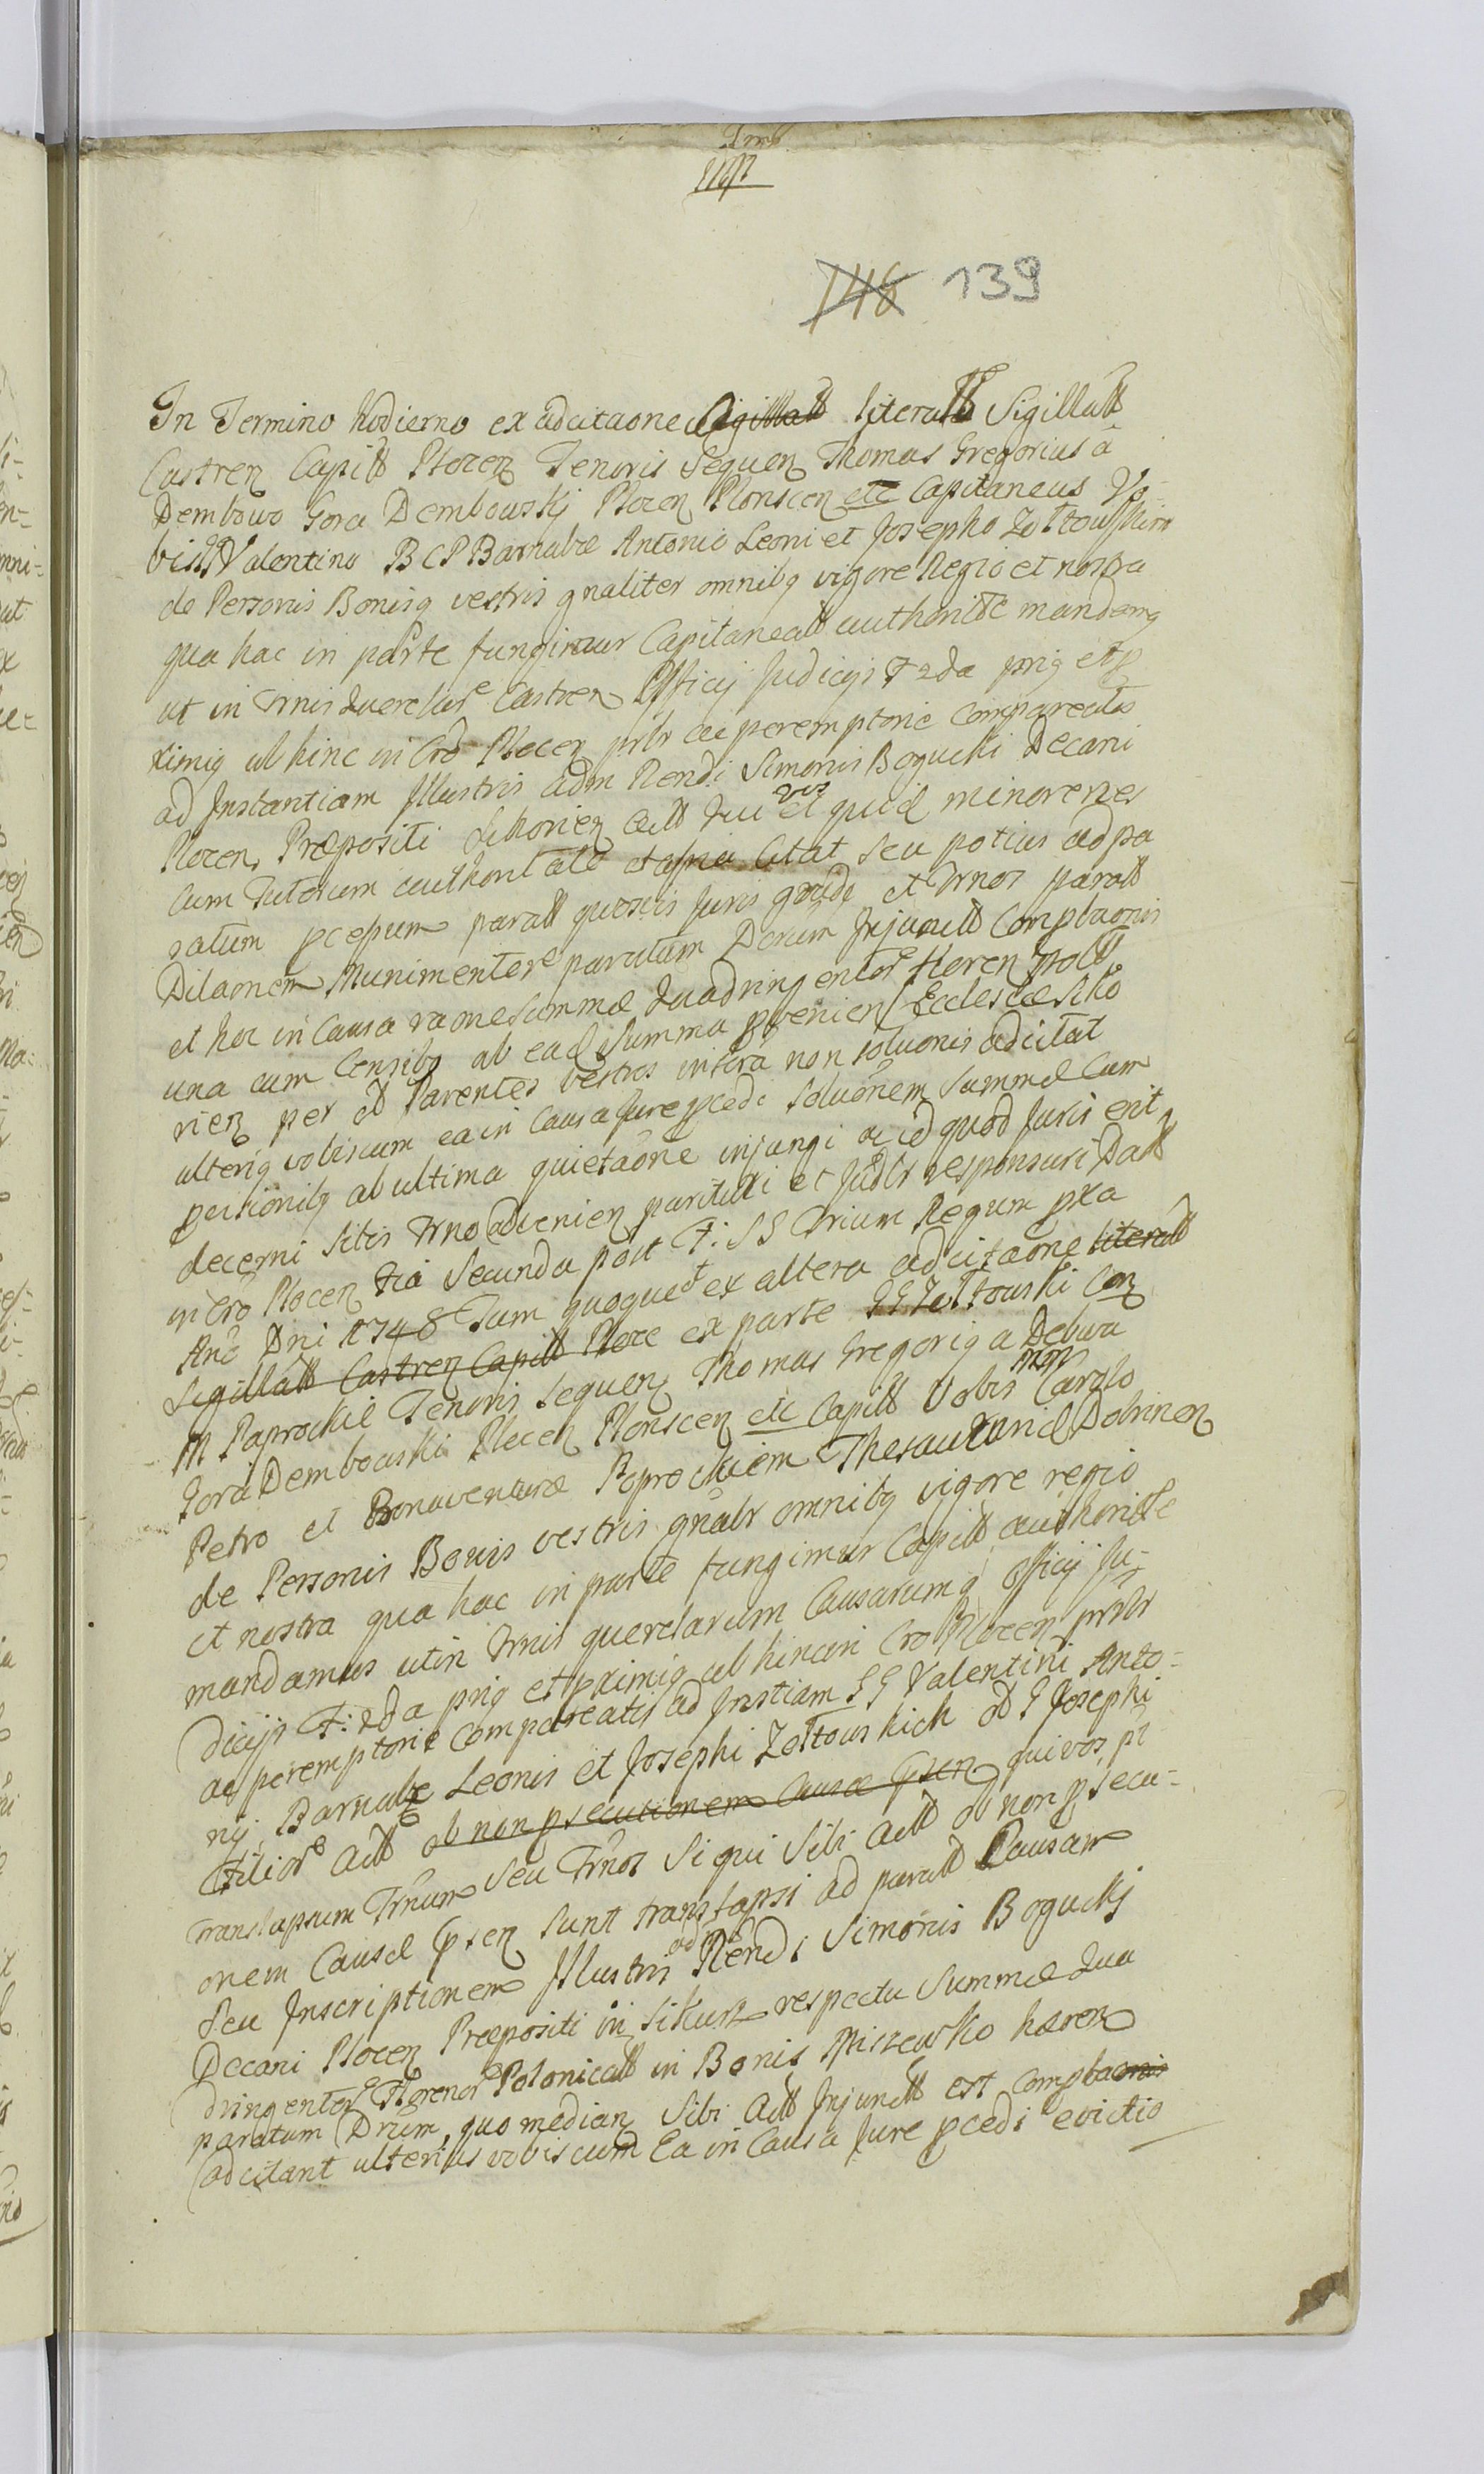 148 139
In Termino hodierno ex adcitaone Sigillatt literatt Sigillatt
Castren Capitt Plocen Tenoris Sequen Thomas Gregorius a
Dembowo Gora Dembowskj Plocen Plonscen etc Capitaneus Vo-
bis Valentino B C P Barnabæ Antonio Leoni et Josepho Zołtowskim
de Personis Bonisq vestris gnaliter omnibq vigore Regio et nostra
qua hac in parte fungimur Capitaneatt authoritte mandamq
ut in Trnis querelar Castren Officij Judicijs F 2da prig et p
ximiq ab hinc in Cro Plocen prlr ac peremptorie Compareatis
ad Instantiam Illustris adm Rendi Simonis Bogucki Decani
Plocen Præpositi Sikorien Actt qui vos et quid minorenes
cum Tutorum authoritate Citat Seu potius ad pa
ratum paratt Juris et Trnos paratt
Dilaonem Munimentor paratum Dorum Injunctt Complaonis
et hoc in Causa raone Summæ Quadringentor Floren poll
una cum Censibq ab ead Summa pvenien Ecclesiæ Siko
rien per Parentes vestros non solvonis adcitat
ulteriq vobiscum ea in Causa Jure pcedi Soluonem Summæ Cum
pensionibq ab ultima quietaone injungi ac id quod Juris erit
decerni Sitis Trno advenien parituri et Judlr responsuri Datt
in Cro Plocen Fia Secunda post F: SS Trium Regum pxa
Ano Dni 1748 Tum quoque ex altera adcitaone literatt
Sigillatt Castren Capitt Ploce ex parte GG Zołtowski Con
M Paprockie Tenoris Sequen Thomas Gregoriq a Debwa
Gora Dembowski Plocen Plonscen etc Capitt Vobis MM Carolo
Petro et Bonaventuræ Paprockiem Thesaurarid Dobrinen
de Personis Bonis vestris gnalr omnibq vigore regio
et nostra qua hac in parte fungimur Capitt authoritte
mandamus utin Trnis querelarum Causarumq Officij Ju-
dicijs F: 2da priq et pximiq ab hinc in Cro Plocen prlr
ac peremptorie Compareatis ad Instiam GG Valentini Anto-
nij Barnabæ Leonis et Josephi Zołtowskich olt G Josephi
Filior Actt ob non psecutionem Causæ psen qui vos pt
translapsum Trnum Seu Trnos Si qui Sibi Actt ob non psecu-
onem Causæ psen Sunt translapsi ad paratt Causam
Seu Inscriptionem Illustris adm Rendi Simonis Boguckj
Decani Plocen Præpositi in Sikurz respectu Summæ Qua
dringentor Florenor Polonicatt in Bonis Miszewko hæren
paratum Drum, quo median Sibi Actt Injunctt est Complaonis
adcitant ulterius vobiscum Ea in Causa Jure pcedi evictio